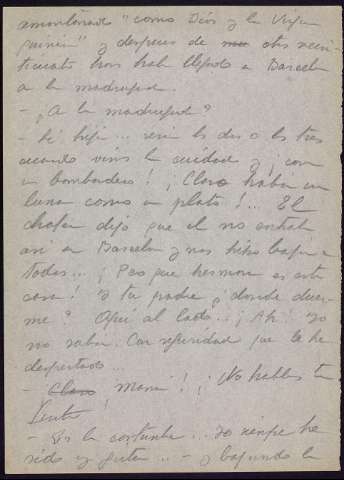 amontonado "como Dios y la Virgen
quieren" y despues de otras vein-
ticuatro horas habia llegado a Barcelona
a la madrugada.
- ¿A la madrugada?
- Si hija... serian las dos o las tres
cuando vimos la ciudad y ¡con
un bombardeo! ¡Claro habia una
luna como un plato!... El
chofer dijo que el no entraba
asi en Barcelona y nos hizo bajar a
todas... ¡Pero que hermosa es esta
casa! ¿Y tu padre ¿donde duer-
me? Aqui al lado... ¡Ah! Yo
no sabia. Con seguridad que le he
despertado...
- Claro Mamá! ¡No hables tan
fuerte!
- Es la costumbre... Yo siempre he
sido asi... - y bajando la